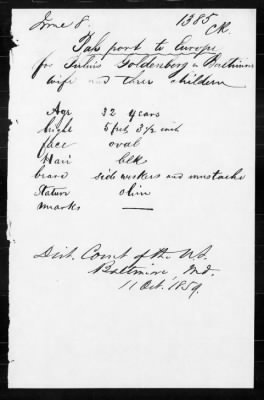 June 8. 1385
CR.
Pass port to Europe
for Julius Goldenberg a Baltimore
wife and their children
Age 32 years
hight 5 feet 3 1/2 inch
face oval
Hair blk
beard side wiskers and mustache
Stature slim
marks —
Dist. Court of the US.
Baltimore, Md.
11 Oct. 1859.